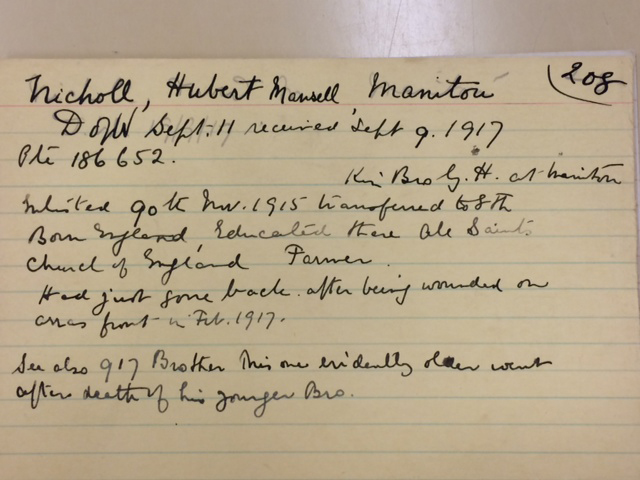 208
Nicholl, Hubert Mansell, Manitou
D of W Sept. 11 received Sept 9. 1917
Pte 186652.
Kin Bro G. H. at Manitou
Enlisted 90th Nov. 1915 transferred to 8th
Born England, Educated there All Saints
Church of England Farmer.
Had just gone back after being wounded on
arras front in Feb. 1917.
See also 917 Brother This one evidently older went
after death of his younger Bro.